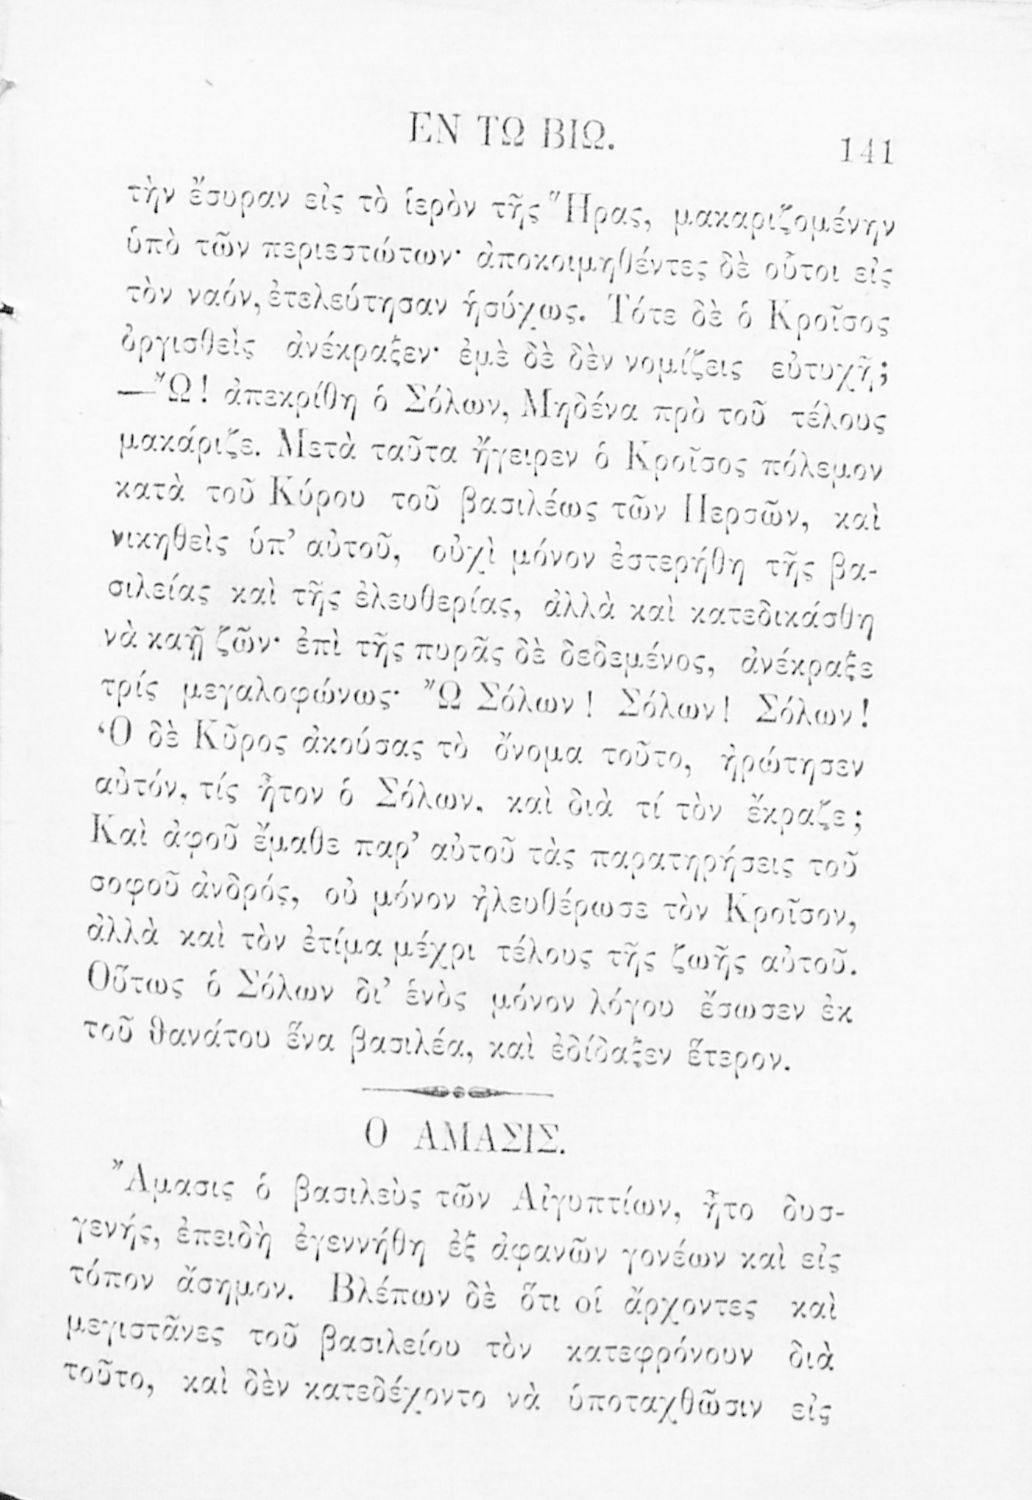 ΕΝ ΤΩ ΒΙΩ. 141
τὴν ἔσυραν εἰς τὸ ἱερὸν τῆς Ἥρας, μακαριζομένην
ὑπὸ τῶν περιεστώτων· ἀποκοιμηθέντες δὲ οὗτοι εἰς
τὸν ναόν, ἐτελεύτησαν ἡσύχως. Τότε δὲ ὁ Κροῖσος
ὀργισθεὶς ἀνέκραξεν· ἐμὲ δὲ δὲν νομίζεις εὐτυχῆ;
—Ὢ! ἀπεκρίθη ὁ Σόλων, Μηδένα πρὸ τοῦ τέλους
μακάριζε. Μετὰ ταῦτα ἤγειρεν ὁ Κροῖσος πόλεμον
κατὰ τοῦ Κύρου τοῦ βασιλέως τῶν Περσῶν, καὶ
νικηθεὶς ὑπ’ αὐτοῦ, οὐχὶ μόνον ἐστερήθη τῆς βα-
σιλείας καὶ τῆς ἐλευθερίας, ἀλλὰ καὶ κατεδικάσθη
νὰ καῇ ζῶν· ἐπὶ τῆς πυρᾶς δὲ δεδεμένος, ἀνέκραξε
τρίς μεγαλοφώνως· Ὢ Σόλων! Σόλων! Σόλων!
Ὁ δὲ Κῦρος ἀκούσας τὸ ὄνομα τοῦτο, ἠρώτησεν
αὐτόν, τίς ἦτον ὁ Σόλων, καὶ διὰ τί τὸν ἔκραζε;
Καὶ ἀφοῦ ἔμαθε παρ’ αὐτοῦ τὰς παρατηρήσεις τοῦ
σοφοῦ ἀνδρός, οὐ μόνον ἠλευθέρωσε τὸν Κροῖσον,
ἀλλὰ καὶ τὸν ἐτίμα μέχρι τέλους τῆς ζωῆς αὐτοῦ.
Οὕτως ὁ Σόλων δι’ ἑνὸς μόνον λόγου ἔσωσεν ἐκ
τοῦ θανάτου ἕνα βασιλέα, καὶ ἐδίδαξεν ἕτερον.
Ο ΑΜΑΣΙΣ.
Ἄμασις ὁ βασιλεὺς τῶν Αἰγυπτίων, ἦτο δυσ-
γενής, ἐπειδὴ ἐγεννήθη ἐξ ἀφανῶν γονέων καὶ εἰς
τόπον ἄσημον. Βλέπων δὲ ὅτι οἱ ἄρχοντες καὶ
μεγιστᾶνες τοῦ βασιλείου τὸν κατεφρόνουν διὰ
τοῦτο, καὶ δὲν κατεδέχοντο νὰ ὑποταχθῶσιν εἰς